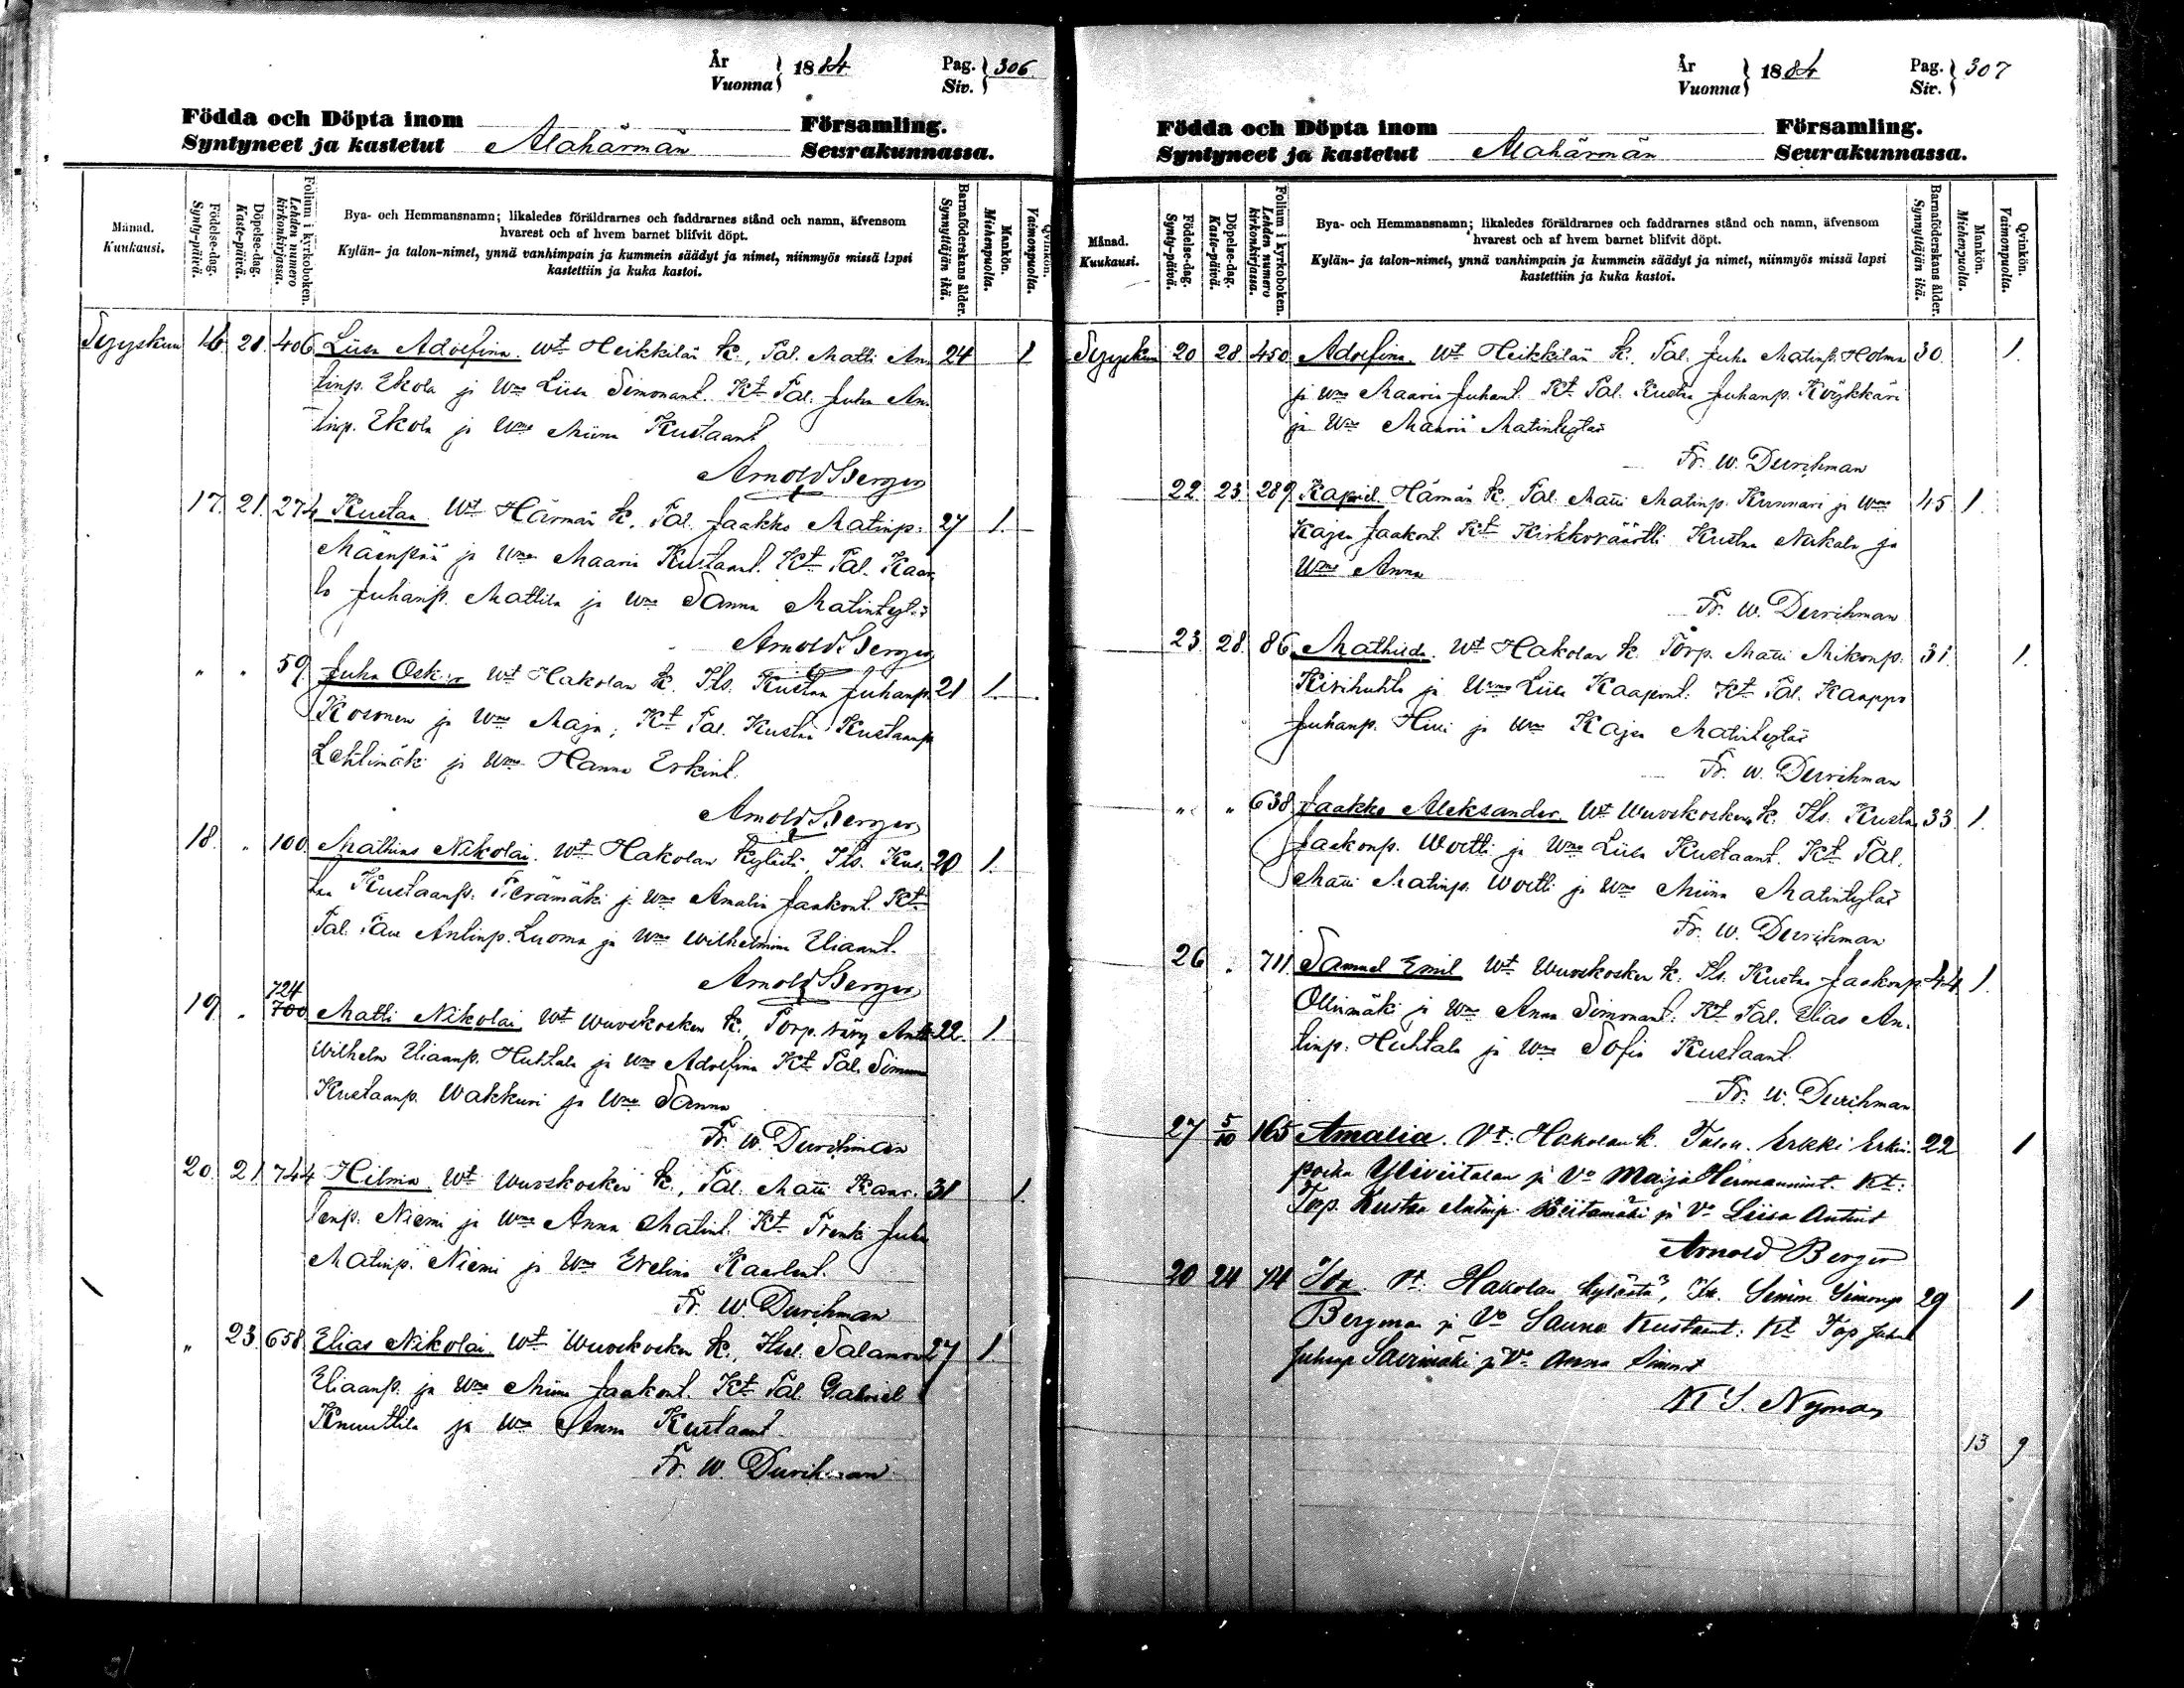 År
Vuonna } 1884
Pag.
Siv. } 306
Födda och Döpta inom
Församling.
Syntyneet ja kastetut
Alahärmän
Seurakunnassa.
Månad.
Kuukausi.
Födelse-dag.
Synty-päivä.
Döpelse-dag.
Kaste-päivä.
Folium i kyrkoboken.
Lehden numero
kirkonkirjassa.
Bya- och Hemmansnamn; likaledes föräldrarnes och faddrarnes stånd och namn, äfvensom
hvarest och af hvem barnet blifvit döpt.
Kylän- ja talon-nimet, ynnä vanhimpain ja kummein säädyt ja nimet, niinmyös missä lapsi
kastettiin ja kuka kastoi.
Barnaföderskans ålder.
Synnyttäjän ikä.
Mankön.
Miehenpuolta.
Qvinkön.
Vaimonpuolta.
Syyskuu 16 21. 406 Liisa Adolfina. Wt Heikkilän k., Tal. Matti An- 24 1
tinp. Ekola ja Wmo Liisa Simonant. Kt Tal. Juha An-
tinp. Ekola ja Wmo Miina Kustaant
Arnold Berger
17. 21. 274 Kustaa Wt Härmän k. Tal. Jaakko Matinp. 27 1.
Mäenpää ja Wmo Maaria Kustaant. Kt Tal. Kaar-
lo Juhanp. Mattila ja Wmo Sanna Matintyt.
Arnold Berger
" " 59. Juha Oskar Wt Hakolan k. Its. Kustaa Juhanp. 21 1.
Kosonen ja Wmo Maja; Kt Tal. Kustaa Kustaanp
Lehtimäki ja Wmo Hanna Erkint.
Arnold Berger
18. " 100. Mathias Nikolai. Wt Hakolan kylästä, Its. Kus- 20 1.
taa Kustaanp. ja Wmo Amalia Jaakont. Kt
Tal. Antinp. Luoma ja Wmo Wilhelmina Eliaant.
Arnold Berger
724
19. " 700 Matti Nikolai Wt Wuoskosken k., Torp. Antti 22. 1.
Wilhelm Eliaanp. Huhtala ja Wmo Adolfina Kt Tal. Simuna
Kustaanp. Wakkuri ja Wmo Sanna
Fr. W. Durchman
20. 21 744 Hilma Wt Wuoskosken k., Tal. Matti Kaar- 31 1.
lenp. Niemi ja Wmo Anna Matint. Kt Trenki Juha
Matinp. Niemi ja Wmo Evelina Kaarlent.
Fr. W. Durchman
" 23. 658. Elias Nikolai. Wt Wuoskosken k., Itsel. Salamon 27 1.
Eliaanp. ja Wmo Miina Jaakont. Kt Tal. Gabriel
Knuuttila ja Wmo Anna Kustaant
Fr. W. Durchman
År
Vuonna } 1884
Pag.
Siv. } 307
Födda och Döpta inom
Församling.
Syntyneet ja kastetut
Alahärmän
Seurakunnassa.
Månad.
Kuukausi.
Födelse-dag.
Synty-päivä.
Döpelse-dag.
Kaste-päivä.
Folium i kyrkoboken.
Lehden numero
kirkonkirjassa.
Bya- och Hemmansnamn; likaledes föräldrarnes och faddrarnes stånd och namn, äfvensom
hvarest och af hvem barnet blifvit döpt.
Kylän- ja talon-nimet, ynnä vanhimpain ja kummein säädyt ja nimet, niinmyös missä lapsi
kastettiin ja kuka kastoi.
Barnaföderskans ålder.
Synnyttäjän ikä.
Mankön.
Miehenpuolta.
Qvinkön.
Vaimonpuolta.
Syyskuu 20 28 450. Adolfina Wt Heikkilän k. Tal. Juha Matinp. Holma 30. 1.
ja Wmo Maaria Juhant. Kt Tal. Kustaa Juhanp. Köykkäri
ja Wmo Maaria Matintytär
Fr. W. Durchman
22. 23 289 Kapriel. Härmän k. Tal. Matti Matinp. Kunnari ja Wmo 45 1.
Kajsa Jaakont. Kt Kirkkoväärtti Kustaa Nukala ja
Wmo Anna
Fr. W. Durchman
23 28. 86 Mathilda. Wt Hakolan k. Torp. Matti Mikonp. 31. 1.
Kivihuhta ja Wmo Liisa Kaapont. Kt Tal. Kaappo
Juhanp. Hiiri ja Wmo Kajsa Matintytär
Fr. W. Durchman
" " 638. Jaakko Aleksander. Wt Wuoskosken k. Its. Kustaa 33 1.
Jaakonp. Wortti ja Wmo Liisa Kustaant. Kt Tal.
Matti Matinp. Wortti ja Wmo Miina Matintytär
Fr. W. Durchman
26 " 711 Samuel Emil Wt Wuoskosken k. Its. Kustaa Jaakonp. 44 1.
Ollinmäki ja Wmo Anna Simonant. Kt Tal. Elias An-
tinp. Huhtala ja Wmo Sofia Kustaant.
Fr. W. Durchman
27 5/10 165 Amalia. Vt: Hakolan k. Erkki Erkin- 22 1
poika Yliviitalan ja Vo Maija Hermannint. Kt:
Top. Kustaa Antinp. ja Vo Liisa Antint
Arnold Berger
20 24 74 Ida. Vt: Hakolan kylästä, Simon Simonp 29 1
Bergman ja Vo Sanna Kustaant: Kt Top Juha
Juhanp Savimäki ja Vo Anna Simont
K S. Nyman
13 9